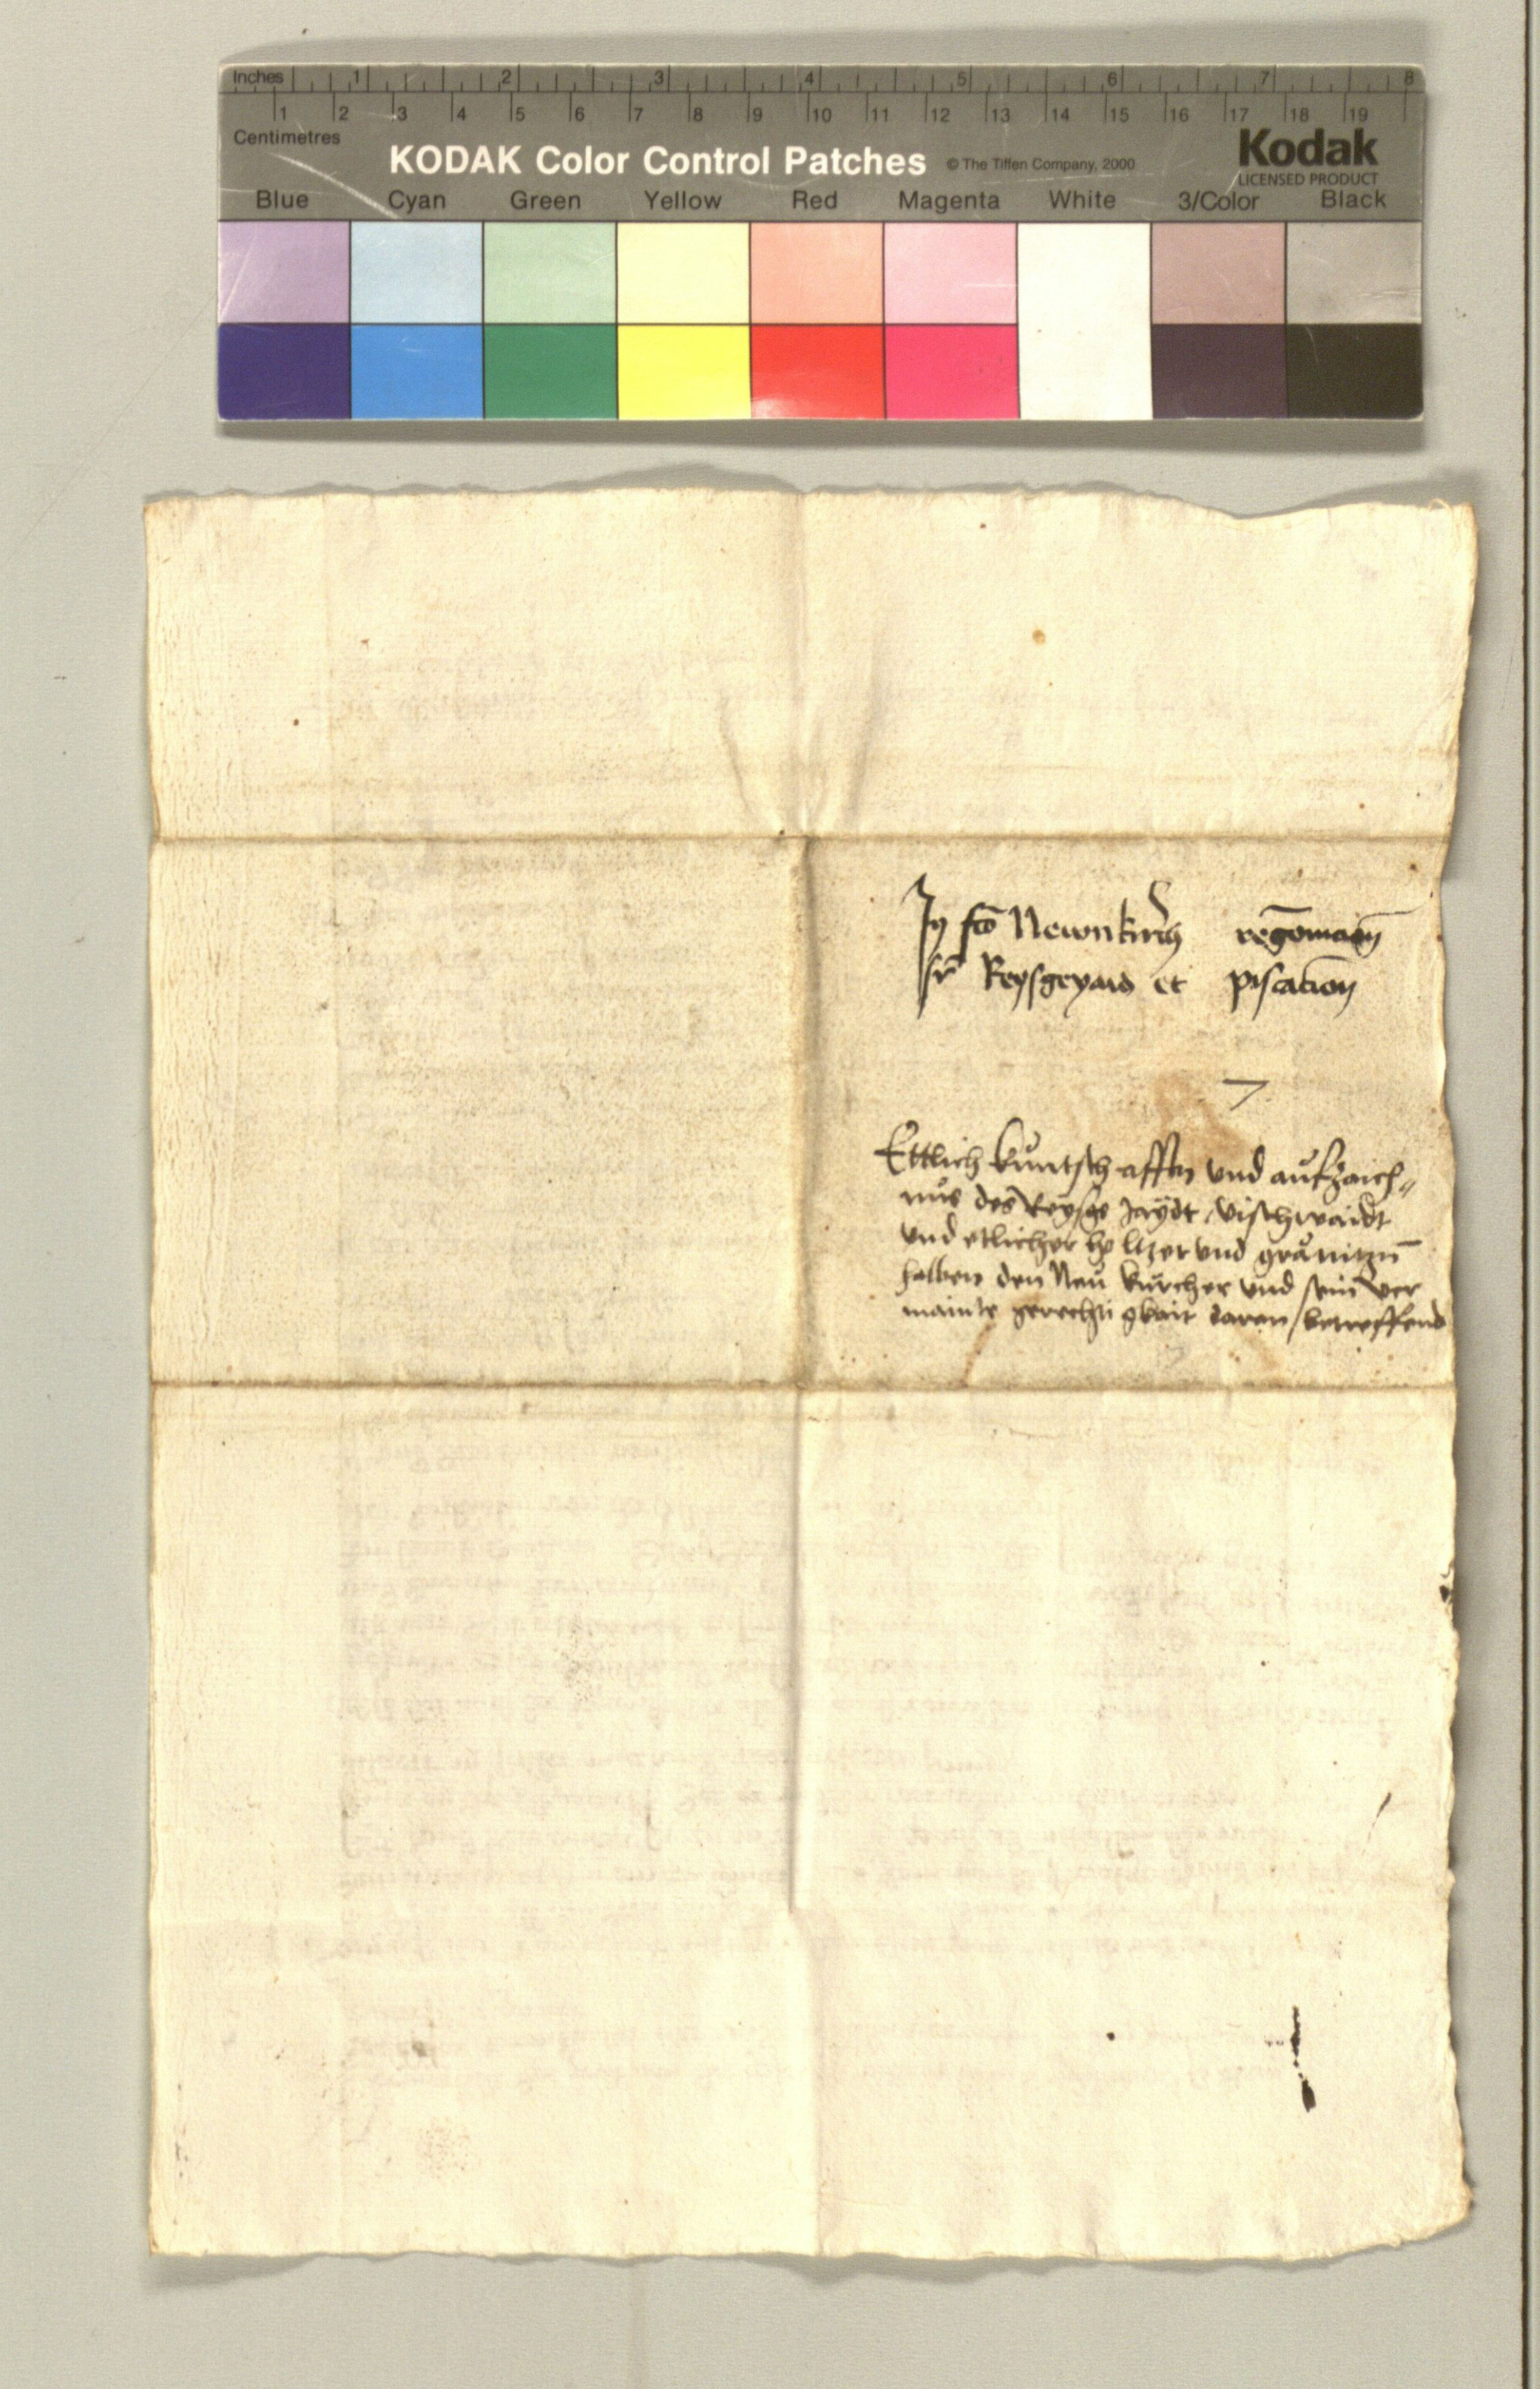 Inches 1 2 3 4 5 6 7 8
1 2 3 4 5 6 7 8 9 10 11 12 13 14 15 16 17 18 19
Centimetres
KODAK Color Control Patches © The Tiffen Company, 2000 Kodak
LICENSED PRODUCT
Blue Cyan Green Yellow Red Magenta White 3/Color Black
In fco Newnkirch
Reysgeyaid et piscacion
7
Ettlich kuntschafften und aufzaich„
nus des Reysge Jaydt vischwaidt
und etlicher holtzer und granitzn
halben den Neukurcher und sein ver
mainte gerechtigkait daran / betreffend